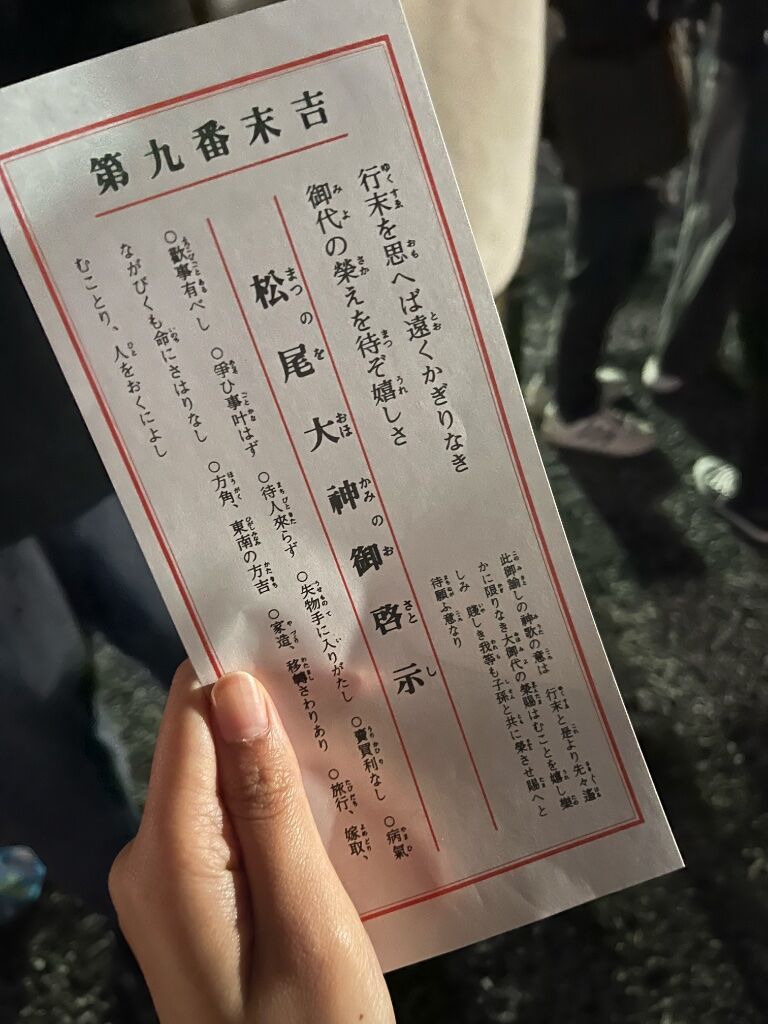 第九番末吉
行末を思へば遠くかぎりなき
御代の榮えを待ぞ嬉しさ
此御諭しの神歌の意は 行末と是より先々遙
かに限りなき大御代の榮賜はむことを嬉し樂
しみ 賤しき我等も子孫と共に榮させ賜へと
待願ふ意なり
松の尾大神の御啓示
○歡事有べし ○爭ひ事叶はず ○待人來らず ○失物手に入りがたし ○賣買利なし ○病氣
ながびくも命にさはりなし ○方角、東南の方吉 ○家造、移轉さわりあり ○旅行、嫁取、
むことり、人をおくによし